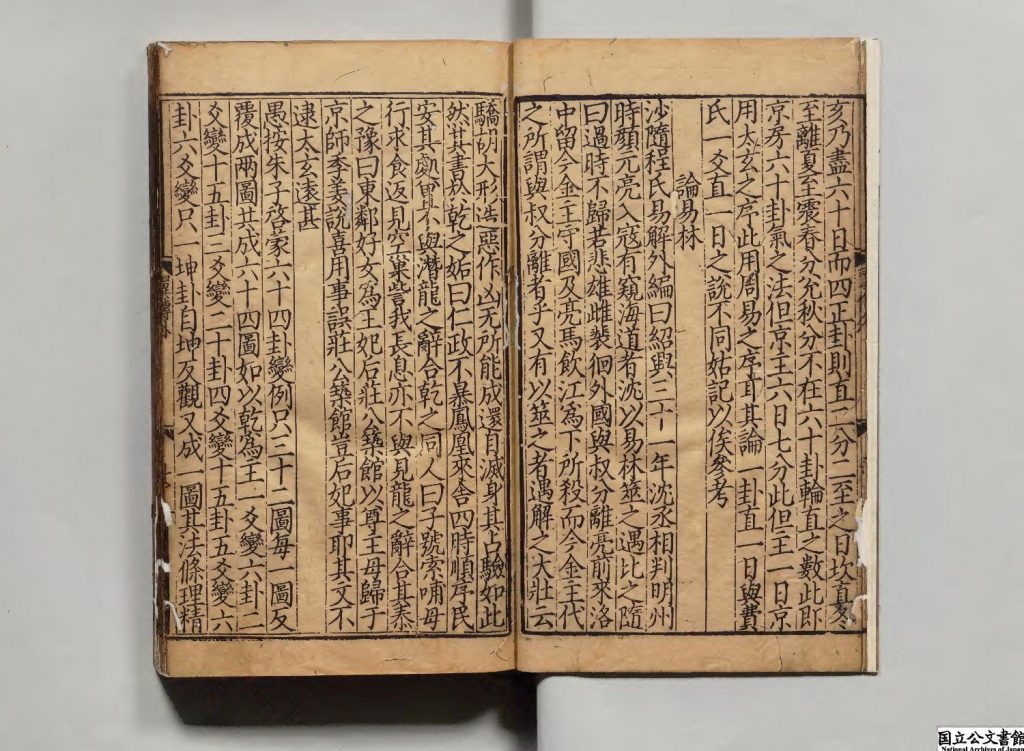 亥乃盡六十日而四正卦則直二分二至之日坎直冬
至離夏至震春分兊秋分不在六十卦輪直之數此即
京房六十卦氣之法但京主六日七分此但主一日京
用太玄之序此用周易之序耳其論一卦直一日與費
氏一爻直一日之說不同姑記以俟參考
論易林
沙隨程氏易解外編曰紹興三十一年沈丞相判明州
時顔元亮入寇有窺海道者沈以易林筮之遇比之隨
曰過時不歸若悲雄雌裴徊外國與叔分離亮前來洛
中留今金主守國及亮馬飲江為下所殺而今金主代
之所謂與叔分離者乎又有以筮之者遇解之大壯云
驕胡大形造惡作凶无所能成還自滅身其占驗如此
然其書於乾之姤曰仁政不暴鳳凰來舍四時順序民
安其處曾不與潛龍之辭合乾之同人曰子號索哺母
行求食返見空巢訾我長息亦不與見龍之辭合其泰
之豫曰東鄰好女為王妃后莊公築館以尊主母歸于
京師季姜說喜用事誤莊公築館豈后妃事耶其文不
逮太玄遠甚
愚按朱子啓蒙六十四卦變例只三十二圖每一圖反
覆成兩圖共成六十四圖如以乾為主一爻變六卦二
爻變十五卦三爻變二十卦四爻變十五卦五爻變六
卦六爻變只一坤卦自坤反觀又成一圖其法條理精
国立公文書館
National Archives of Japan